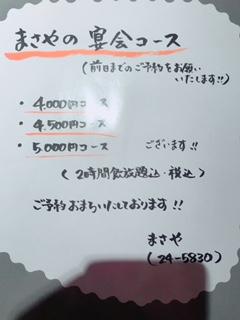 まさやの 宴会コース
(前日までのご予約をお願い
いたします!!)
・4.000円コース
・4.500円コース
・5.000円コース ございます!!
(2時間飲放題込・税込)
ご予約おまちいたしております!!
まさや
(24-5830)